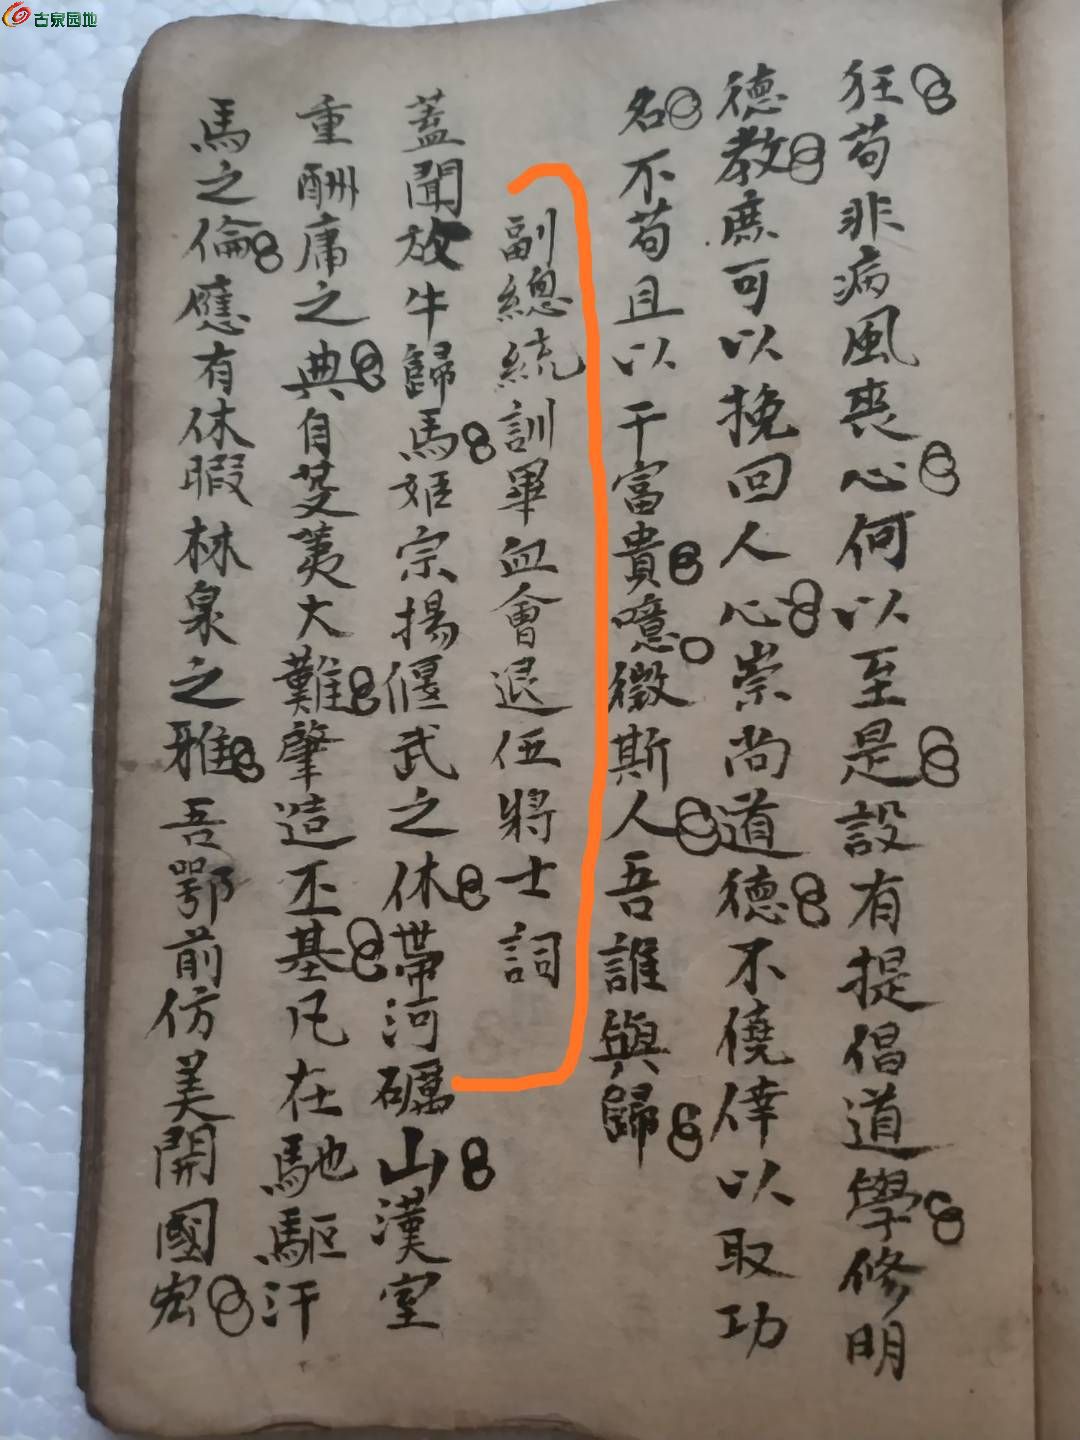 古泉园地
狂苟非病風喪心何以至是設有提倡道學修明
德教庶可以挽回人心崇尚道德不僥倖以取功
名不苟且以干富貴噫微斯人吾誰與歸
副總統訓畢血會退伍將士詞
蓋聞放牛歸馬姬宗揚偃武之休帶河礪山漢室
重酬庸之典自芟荑大難肇造丕基凡在馳驅汗
馬之倫應有休暇林泉之雅吾鄂前仿美開國宏